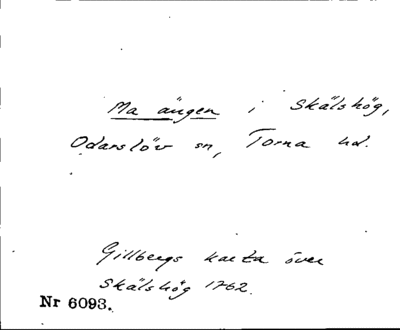 Ma ängen i Skälshög,
Odarslöv sn, Torna hd.
Gillbergs karta över
Skälshög 1762.
Nr 6093.